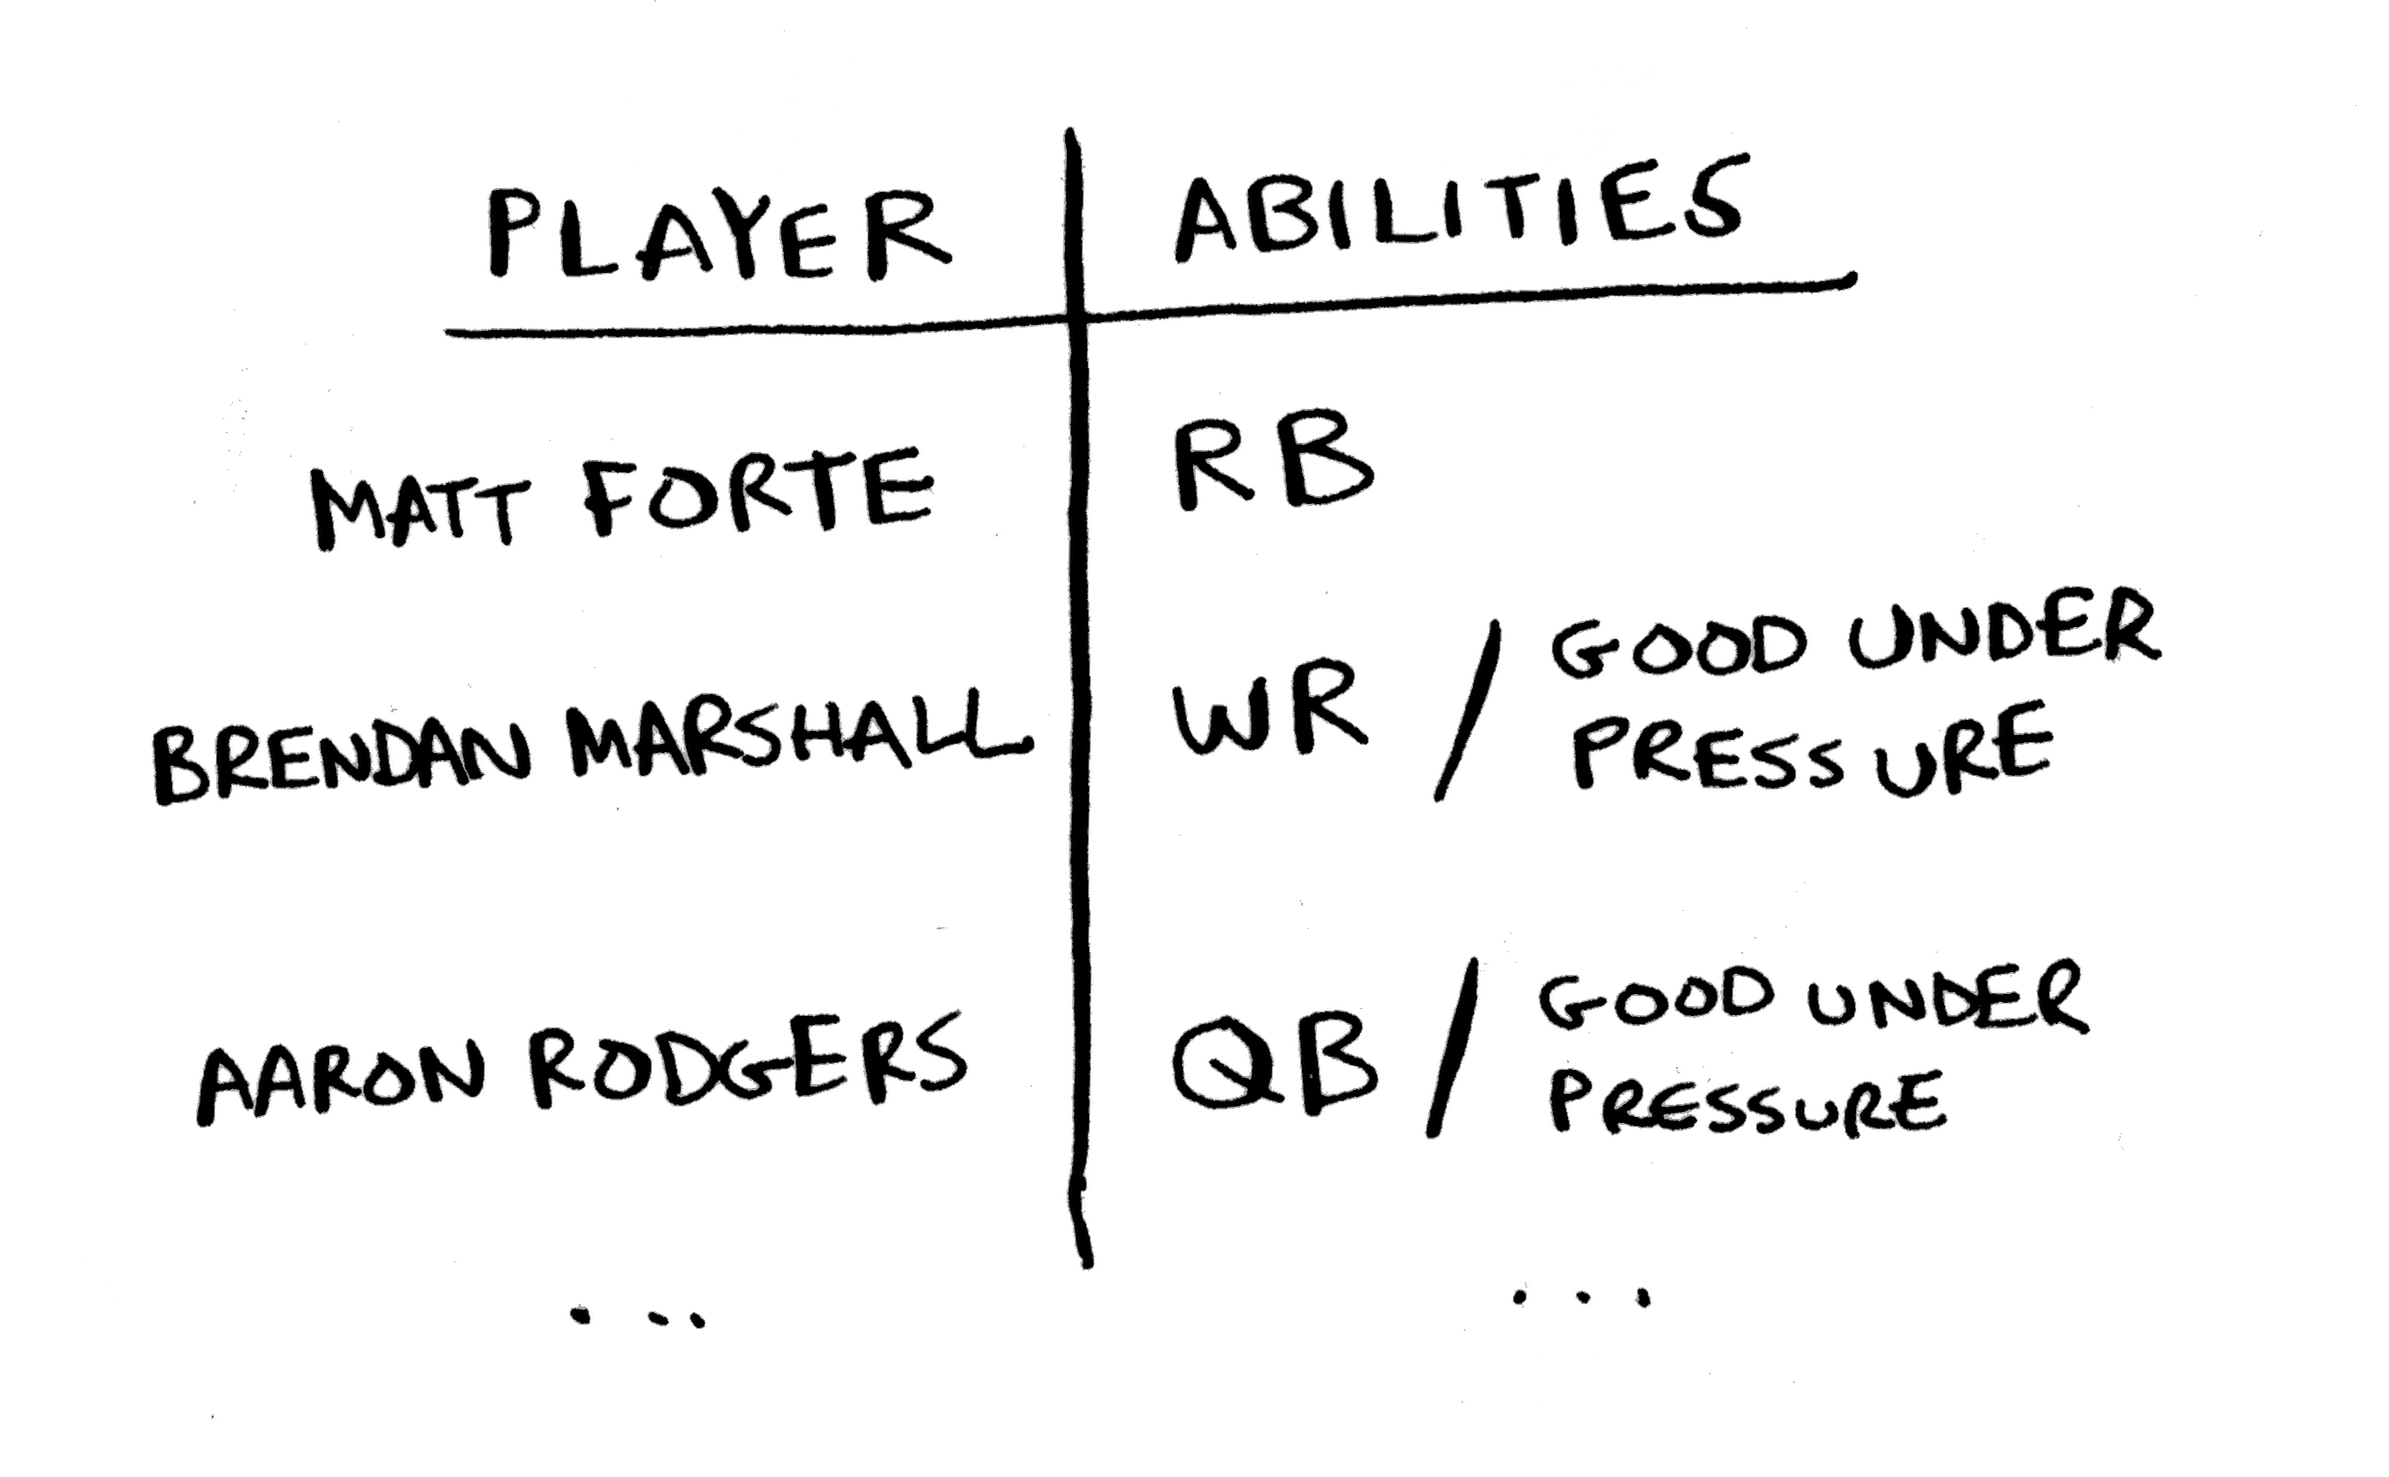 PLAYER ABILITIES
MATT FORTE RB
BRENDAN MARSHALL WR / GOOD UNDER
PRESSURE
AARON RODGERS QB / GOOD UNDER
PRESSURE
... ...